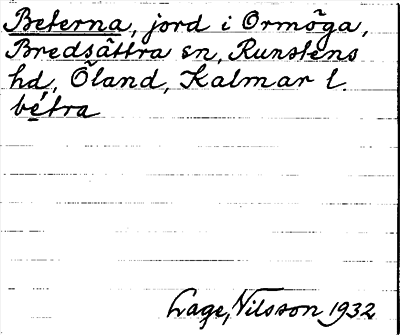 Beterna, jord i Ormöga,
Bredsättra sn, Runstens
hd, Öland, Kalmar l.
bétra
Lage, Nilsson 1932